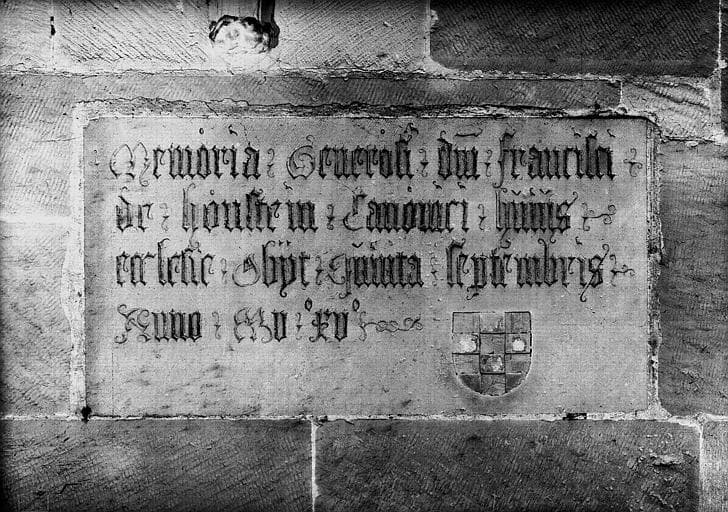 Memoria Generosi dñi francisci
de honstein Canonici hui9
ecclesie Obijt Quinta septembris
Anno Mv°xv°